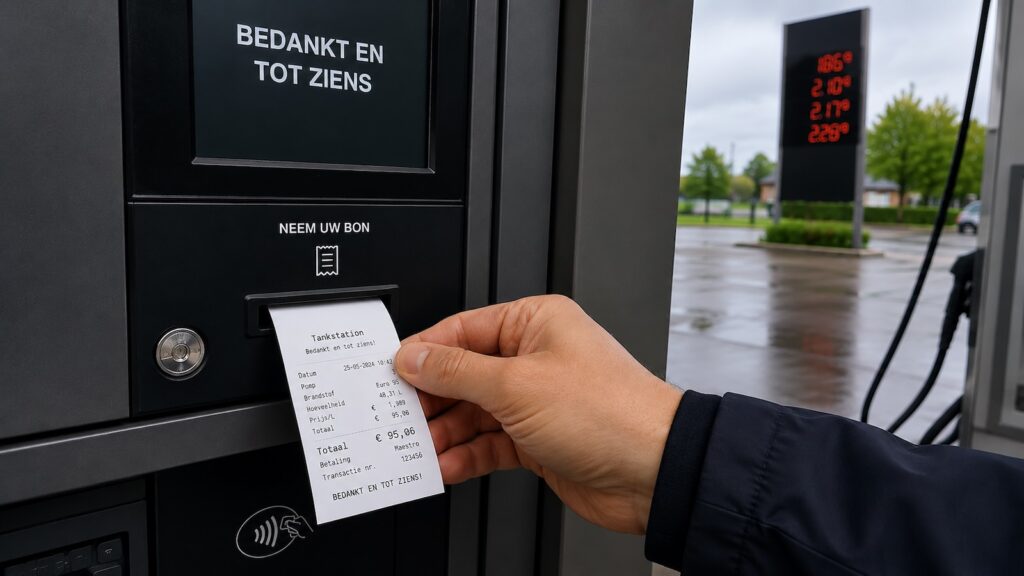 BEDANKT EN
TOT ZIENS
NEEM UW BON
Tankstation
Bedankt en tot ziens!
Datum 25-05-2024
Pomp
Brandstof Euro 95
Hoeveelheid 48,31 L
Prijs/L €
Totaal € 95,06
Totaal € 95,06
Betaling Maestro
Transactie nr. 123456
BEDANKT EN TOT ZIENS!
186⁹
2.10⁹
2.17⁹
2.28⁹